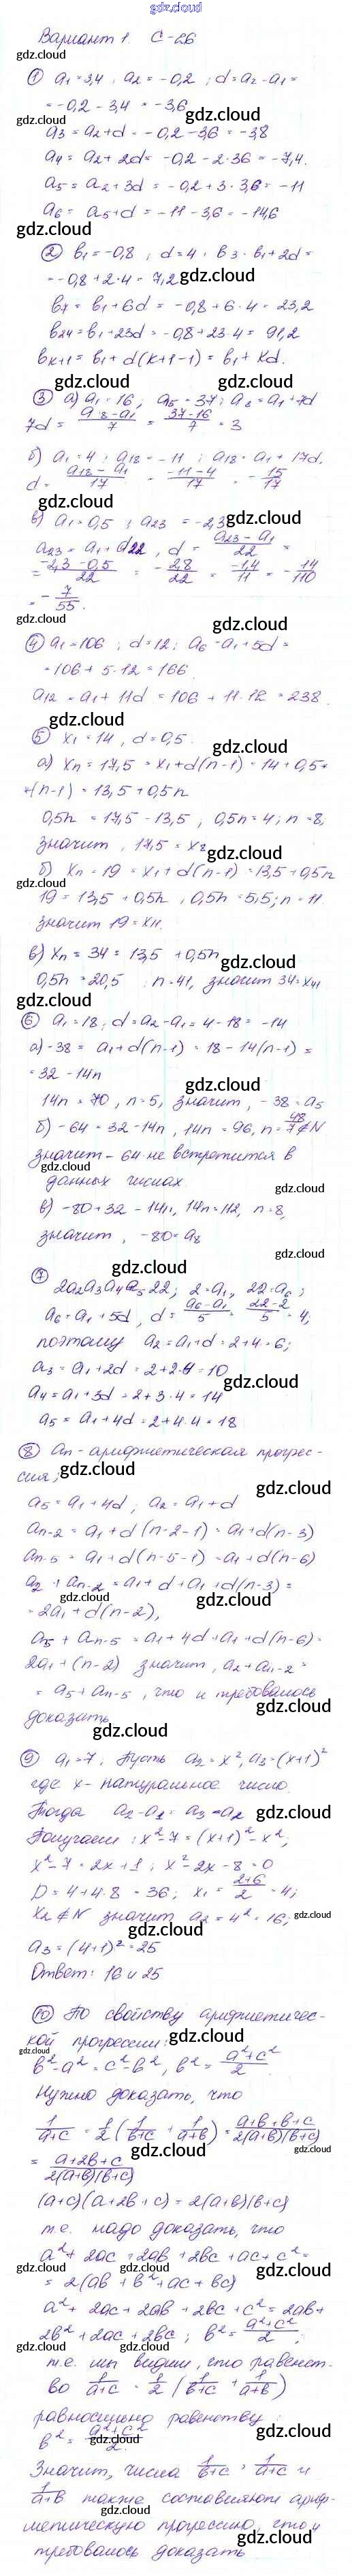 gdz.cloud
Вариант 1. С-26
gdz.cloud
① a₁=3,4, a₂=-0,2; d=a₂-a₁=
=-0,2-3,4=-3,6
gdz.cloud
gdz.cloud
a₃=a₂+d=-0,2-3,6=-3,8
a₄=a₂+2d=-0,2-2·36=-7,4.
a₅=a₂+3d=-0,2+3·3,6=-11
a₆=a₅+d=-11-3,6=-14,6
gdz.cloud
gdz.cloud
② b₁=-0,8, d=4, b₃=b₁+2d=
=-0,8+2·4=7,2
gdz.cloud
b₇=b₁+6d=-0,8+6·4=23,2
b₂₄=b₁+23d=-0,8+23·4=91,2
bₖ₊₁=b₁+d(k+1-1)=b₁+kd.
gdz.cloud
gdz.cloud
③ а) a₁=16; a₈=37; a₈=a₁+7d
7d=(a₈-a₁)/7=(37-16)/7=3
gdz.cloud
б) a₁=4; a₁₈=-11; a₁₈=a₁+17d.
d=(a₁₈-a₁)/17=(-11-4)/17=-15/17
gdz.cloud
в) a₁=0,5; a₂₃=-2,3
gdz.cloud
a₂₃=a₁+d22, d=(a₂₃-a₁)/22=
=(-2,3-0,5)/22=-2,8/22=-1,4/11=-14/110
=-7/55.
gdz.cloud
④ a₁=106; d=12; a₆=a₁+5d=
=106+5·12=166
gdz.cloud
a₁₂=a₁+11d=106+11·12=238.
gdz.cloud
⑤ x₁=14, d=0,5.
а) xₙ=17,5=x₁+d(n-1)=14+0,5*
*(n-1)=13,5+0,5n
0,5n=17,5-13,5, 0,5n=4; n=8,
значит, 17,5=x₈
gdz.cloud
б) xₙ=19=x₁+d(n-1)=13,5+0,5n
gdz.cloud
19=13,5+0,5n, 0,5n=5,5; n=11
значит 19=x₁₁.
в) xₙ=34=13,5+0,5n
gdz.cloud
0,5n=20,5 n=41, значит 34=x₄₁
gdz.cloud
⑥ a₁=18; d=a₂-a₁=4-18=-14
а)-38=a₁+d(n-1)=18-14(n-1)=
=32-14n
gdz.cloud
14n=70, n=5, значит, -38=a₅
б)-64=32-14n, 14n=96, n=48/7∉N
значит-64 не встретится в
gdz.cloud
данных числах
gdz.cloud
в)-80=32-14n, 14n=112, n=8,
значит, -80=a₈
gdz.cloud
gdz.cloud
⑦
2a₂a₃a₄a₅22; 2=a₁, 22=a₆;
a₆=a₁+5d, d=(a₆-a₁)/5=(22-2)/5=4;
поэтому a₂=a₁+d=2+4=6;
a₃=a₁+2d=2+2·4=10
a₄=a₁+3d=2+3·4=14
a₅=a₁+4d=2+4·4=18
⑧ aₙ-арифметическая прогрес-
сия;
gdz.cloud
gdz.cloud
a₅=a₁+4d, a₂=a₁+d
aₙ₋₂=a₁+d(n-2-1)=a₁+d(n-3)
gdz.cloud
gdz.cloud
aₙ₋₅=a₁+d(n-5-1)=a₁+d(n-6)
a₂+aₙ₋₂=a₁+d+a₁+d(n-3)=
gdz.cloud
gdz.cloud
=2a₁+d(n-2),
a₅+aₙ₋₅=a₁+4d+a₁+d(n-6)=
2a₁+(n-2) значит, a₂+aₙ₋₂=
gdz.cloud
=a₅+aₙ₋₅, что и требовалось
gdz.cloud
доказать
gdz.cloud
⑨ a₁=7. Пусть a₂=x², a₃=(x+1)²
где x-натуральное число.
Тогда a₂-a₁=a₃-a₂
gdz.cloud
Получаем: x²-7=(x+1)²-x²,
x²-7=2x+1; x²-2x-8=0
D=4+4·8=36; x₁=(2+6)/2=4;
x₂∉N значит a₂=4²=16;
gdz.cloud
gdz.cloud
a₃=(4+1)²=25
Ответ: 16 и 25
⑩ По свойству арифметичес-
кой прогрессии:
gdz.cloud
gdz.cloud
b²-a²=c²-b², b²=(a²+c²)/2.
Нужно доказать, что
1/(a+c)=1/2(1/(b+c)+1/(a+b))=(a+b+b+c)/(2(a+b)(b+c))
gdz.cloud
gdz.cloud
=(a+2b+c)/(2(a+b)(b+c))
(a+c)(a+2b+c)=2(a+b)(b+c)
т.е. надо доказать, что
a²+2ac+2ab+2bc+ac+c²=
gdz.cloud
gdz.cloud
=2(ab+b²+ac+bc)
a²+2ac+2ab+2bc+c²=2ab+
2b²+2ac+2bc; b²=(a²+c²)/2,
gdz.cloud
gdz.cloud
gdz.cloud
т.е. мы видим, что равенст-
во 1/(a+c)=1/2(1/(b+c)+1/(a+b))
равносильно равенству
gdz.cloud
b²=(a²+c²)/2.
gdz.cloud
Значит, числа 1/(b+c), 1/(a+c) и
1/(a+b) также составляют ариф-
gdz.cloud
gdz.cloud
метическую прогрессию, что и
gdz.cloud
требовалось доказать